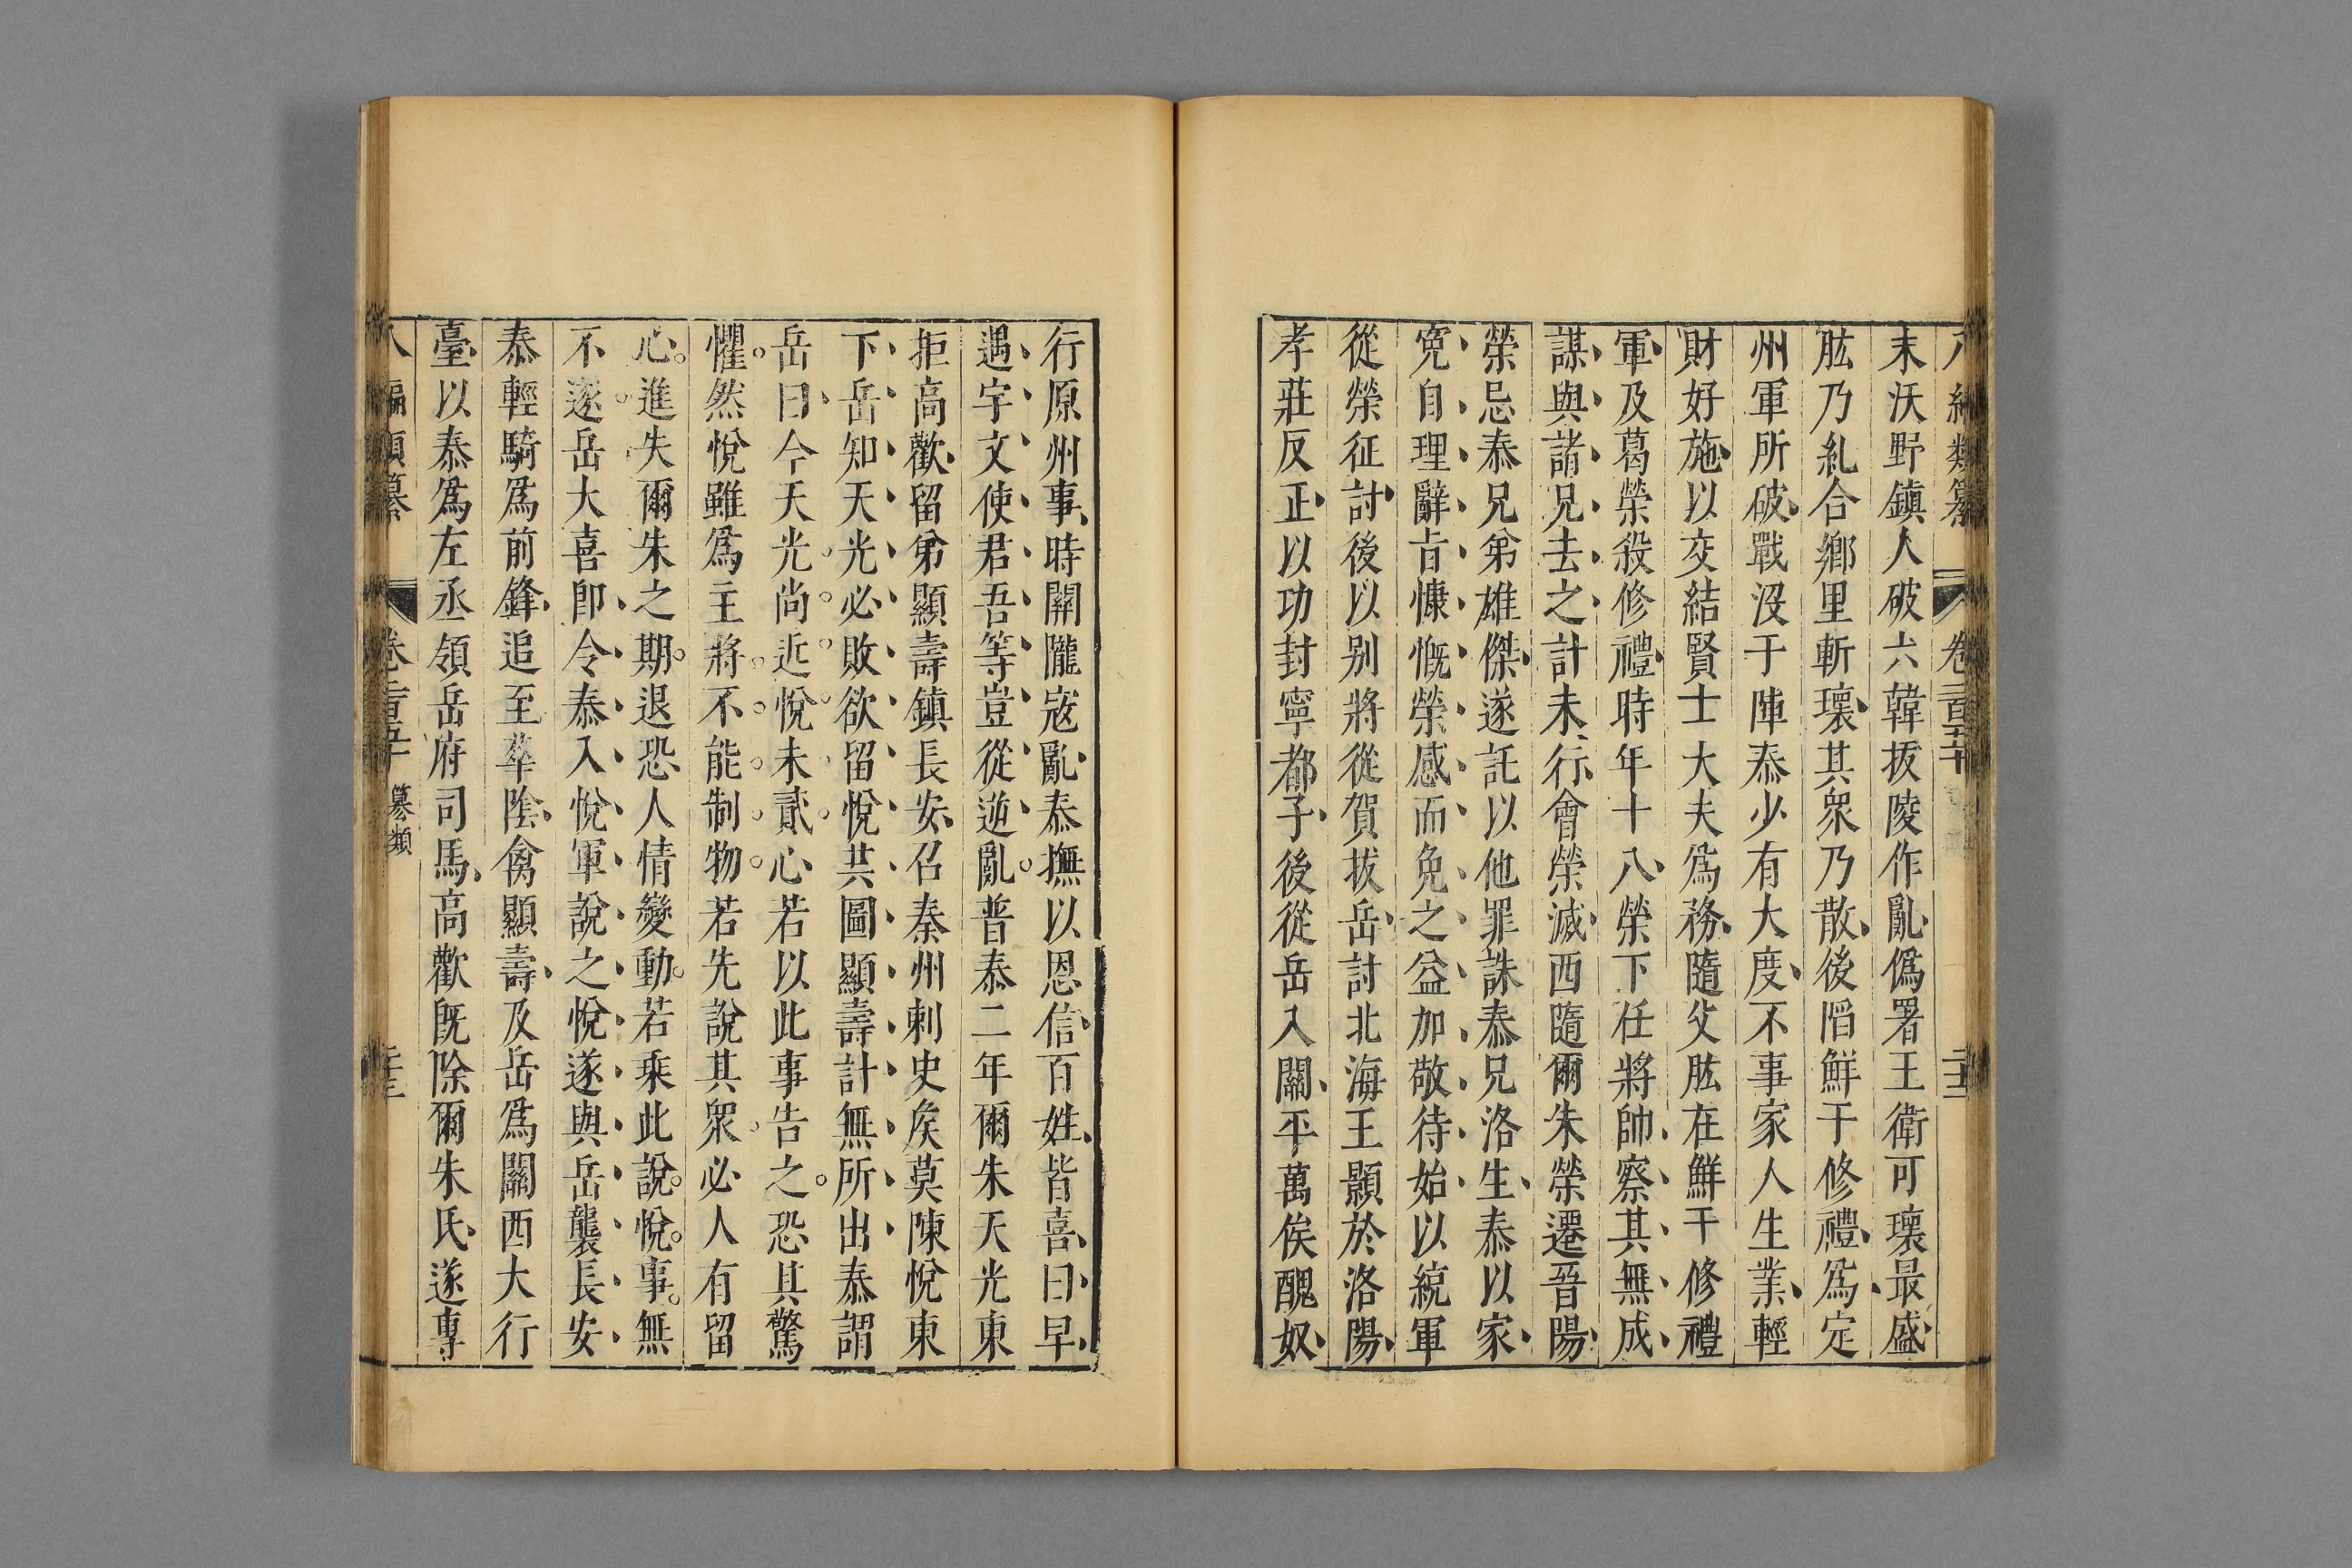 八編類纂 卷二百五十 二十三
末沃野鎮人破六韓拔陵作亂僞署王衛可瓌最盛
肱乃糺合鄉里斬瓌其衆乃散後陷鮮于修禮爲定
州軍所破戰没于陣泰少有大度不事家人生業輕
財好施以交結賢士大夫爲務隨父肱在鮮于修禮
軍及葛榮殺修禮時年十八榮下任將帥察其無成
謀與諸兄去之計未行會榮滅西隨爾朱榮遷晉陽
榮忌泰兄弟雄傑遂託以他罪誅泰兄洛生泰以家
寃自理辭旨慷慨榮感而免之益加敬待始以統軍
從榮征討後以别將從賀拔岳討北海王顥於洛陽
孝莊反正以功封寧都子後從岳入關平萬俟醜奴
行原州事時關隴寇亂泰撫以恩信百姓皆喜曰早
遇宇文使君吾等豈從逆亂普泰二年爾朱天光東
拒高歡留弟顯壽鎮長安召秦州刺史矦莫陳悅東
下岳知天光必敗欲留悅共圖顯壽計無所出泰謂
岳曰今天光尚近悅未貳心若以此事告之恐其驚
懼然悅雖爲主將不能制物若先說其衆必人有留
心進失爾朱之期退恐人情變動若乘此說悅事無
不遂岳大喜即令泰入悅軍說之悅遂與岳襲長安
泰輕騎爲前鋒追至華陰禽顯壽及岳爲關西大行
臺以泰爲左丞領岳府司馬高歡既除爾朱氏遂專
八編類纂 卷二百五十 纂類 二十三